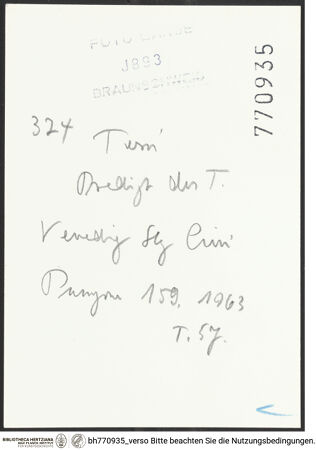 FOTO LANGE
J893
BRAUNSCHWEIG
770935
324
Predigt des T.
Venedig Slg Cini
159, 1963
T. 57.
BIBLIOTHECA HERTZIANA
MAX-PLANCK-INSTITUT
FÜR KUNSTGESCHICHTE
bh770935_verso Bitte beachten Sie die Nutzungsbedingungen.